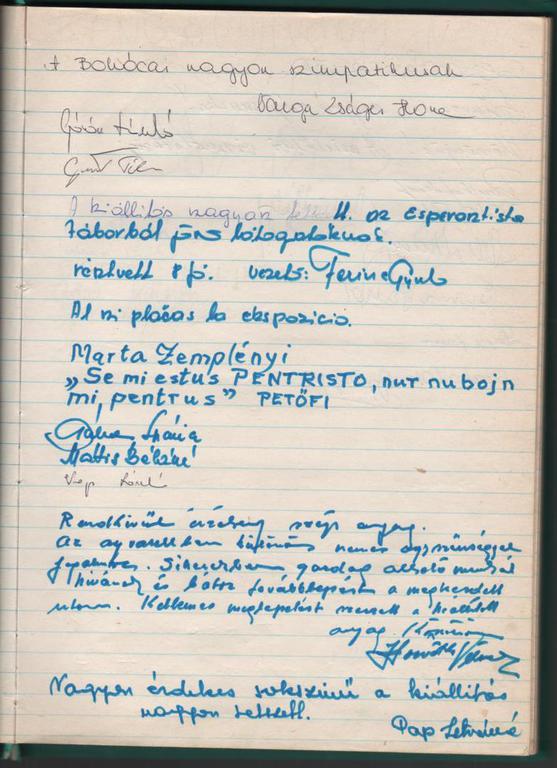 A Bohócai nagyon szimpatikusak
Varga Zságer Ilona
A kiállítás nagyon tetszett. az Esperantista
táborból jövő látogatóknak.
résztvett 8 fő. vezető: Ferinc Gyula
Al ni plaĉas la ekspozicio.
Marta Zemplényi
„Se mi estus PENTRISTO, nur nubojn
mi, pentrus” PETŐFI
Mária
Mattis Béláné
Rendkívül érzékeny szép anyag.
Az agyvasakban különös nemes egyszerűséggel
fogalmaz. Sikerekben gazdag alkotó munkát
kívánok és bátor továbblépést a megkezdett
úton. Kellemes meglepetést szerzett a kiállított
anyag. Köszönöm
Horváth
Nagyon érdekes sokszínű a kiállítás
nagyon tetszett.
Pap Istvánné